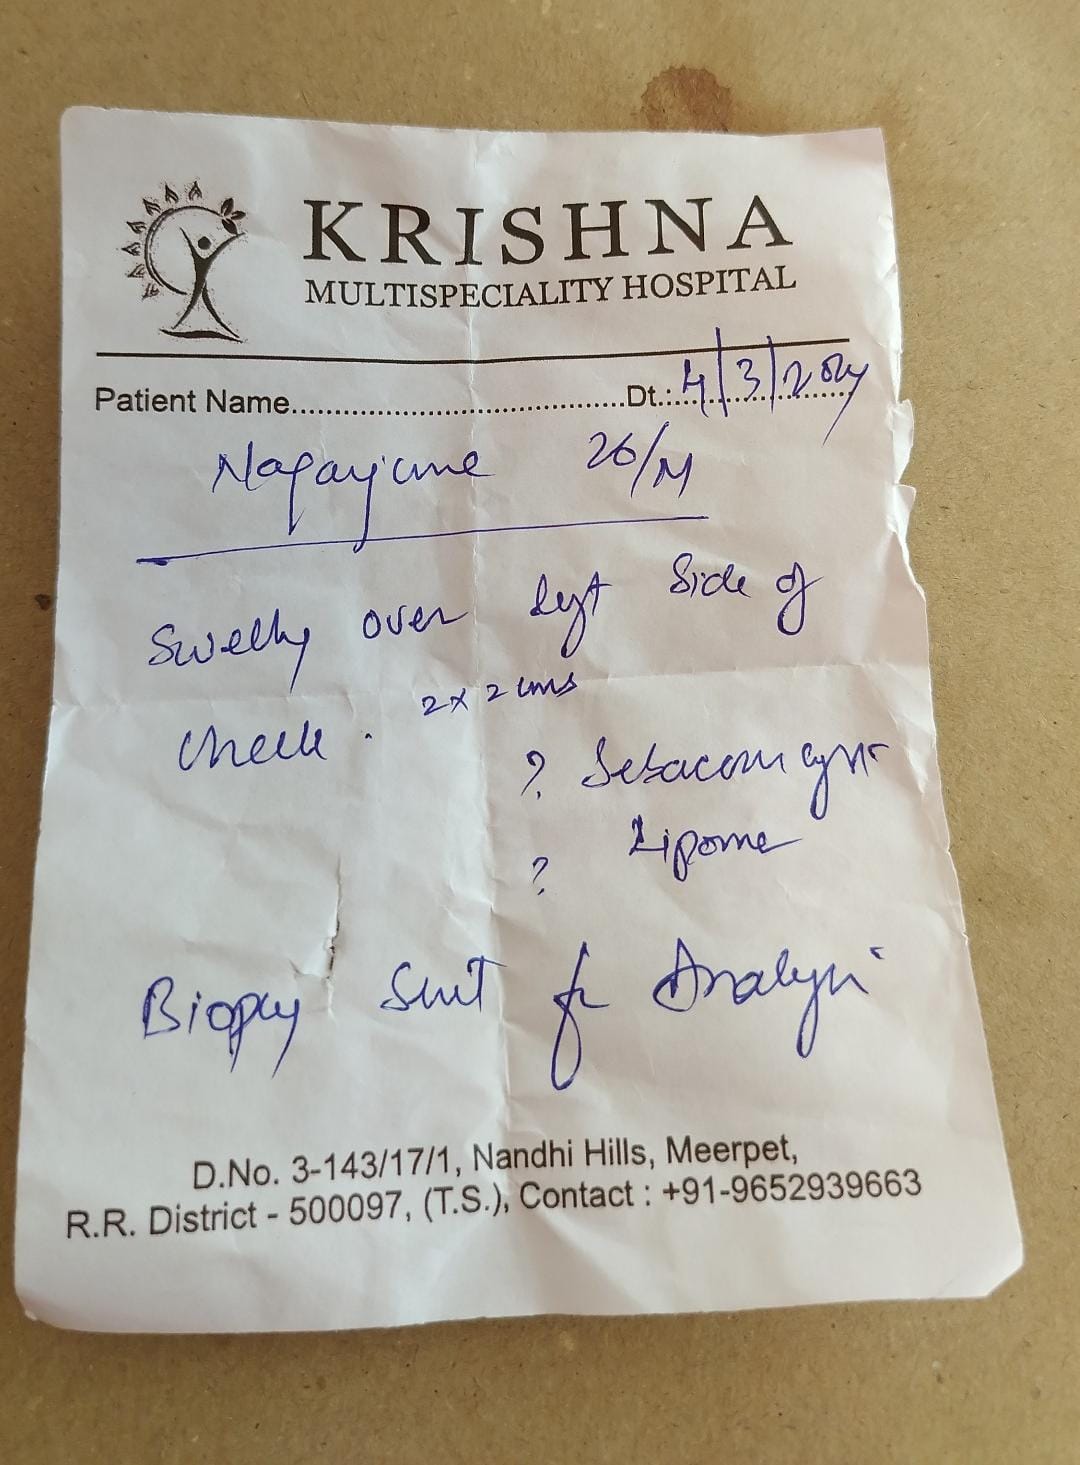 KRISHNA
MULTISPECIALITY HOSPITAL
Patient Name..........................................Dt.:.4/3/2024
Nagarjuna 26/M
Swelling over left side of
cheek . 2 x 2 cms
? Sebaceous cyst
? Lipoma
Biopsy sent for Analysis
D.No. 3-143/17/1, Nandhi Hills, Meerpet,
R.R. District - 500097, (T.S.), Contact : +91-9652939663